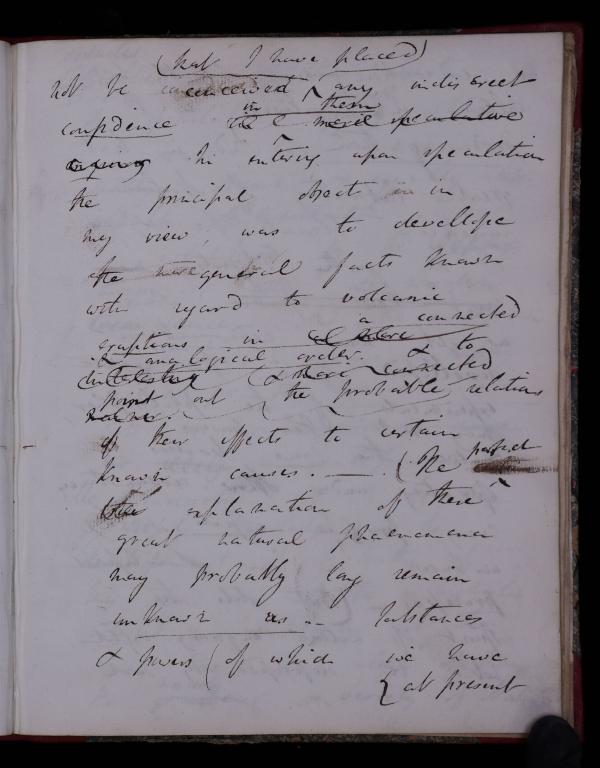 (that I have placed)
not be conceived any indiscreet
in them
confidence mere speculative
In entering upon speculation
the principal object in
my view, was to devellope
the more general facts known
with regard to volcanic
a connected
eruptions in
& analogical order. & to
interesting (& more connected
point out the probable relations
manner.
of their effects to certain
known causes. — (The perfect
explanation of these
great natural phaenomena
may probably long remain
unknown as - substances
& powers (of which we have
{ at present